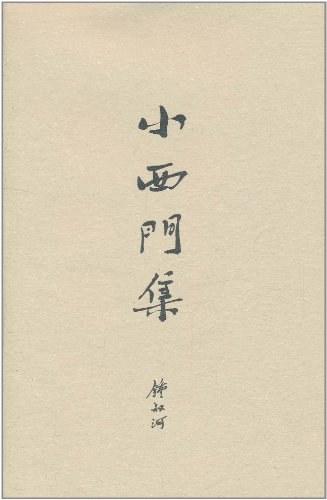 小西門集
鍾叔河